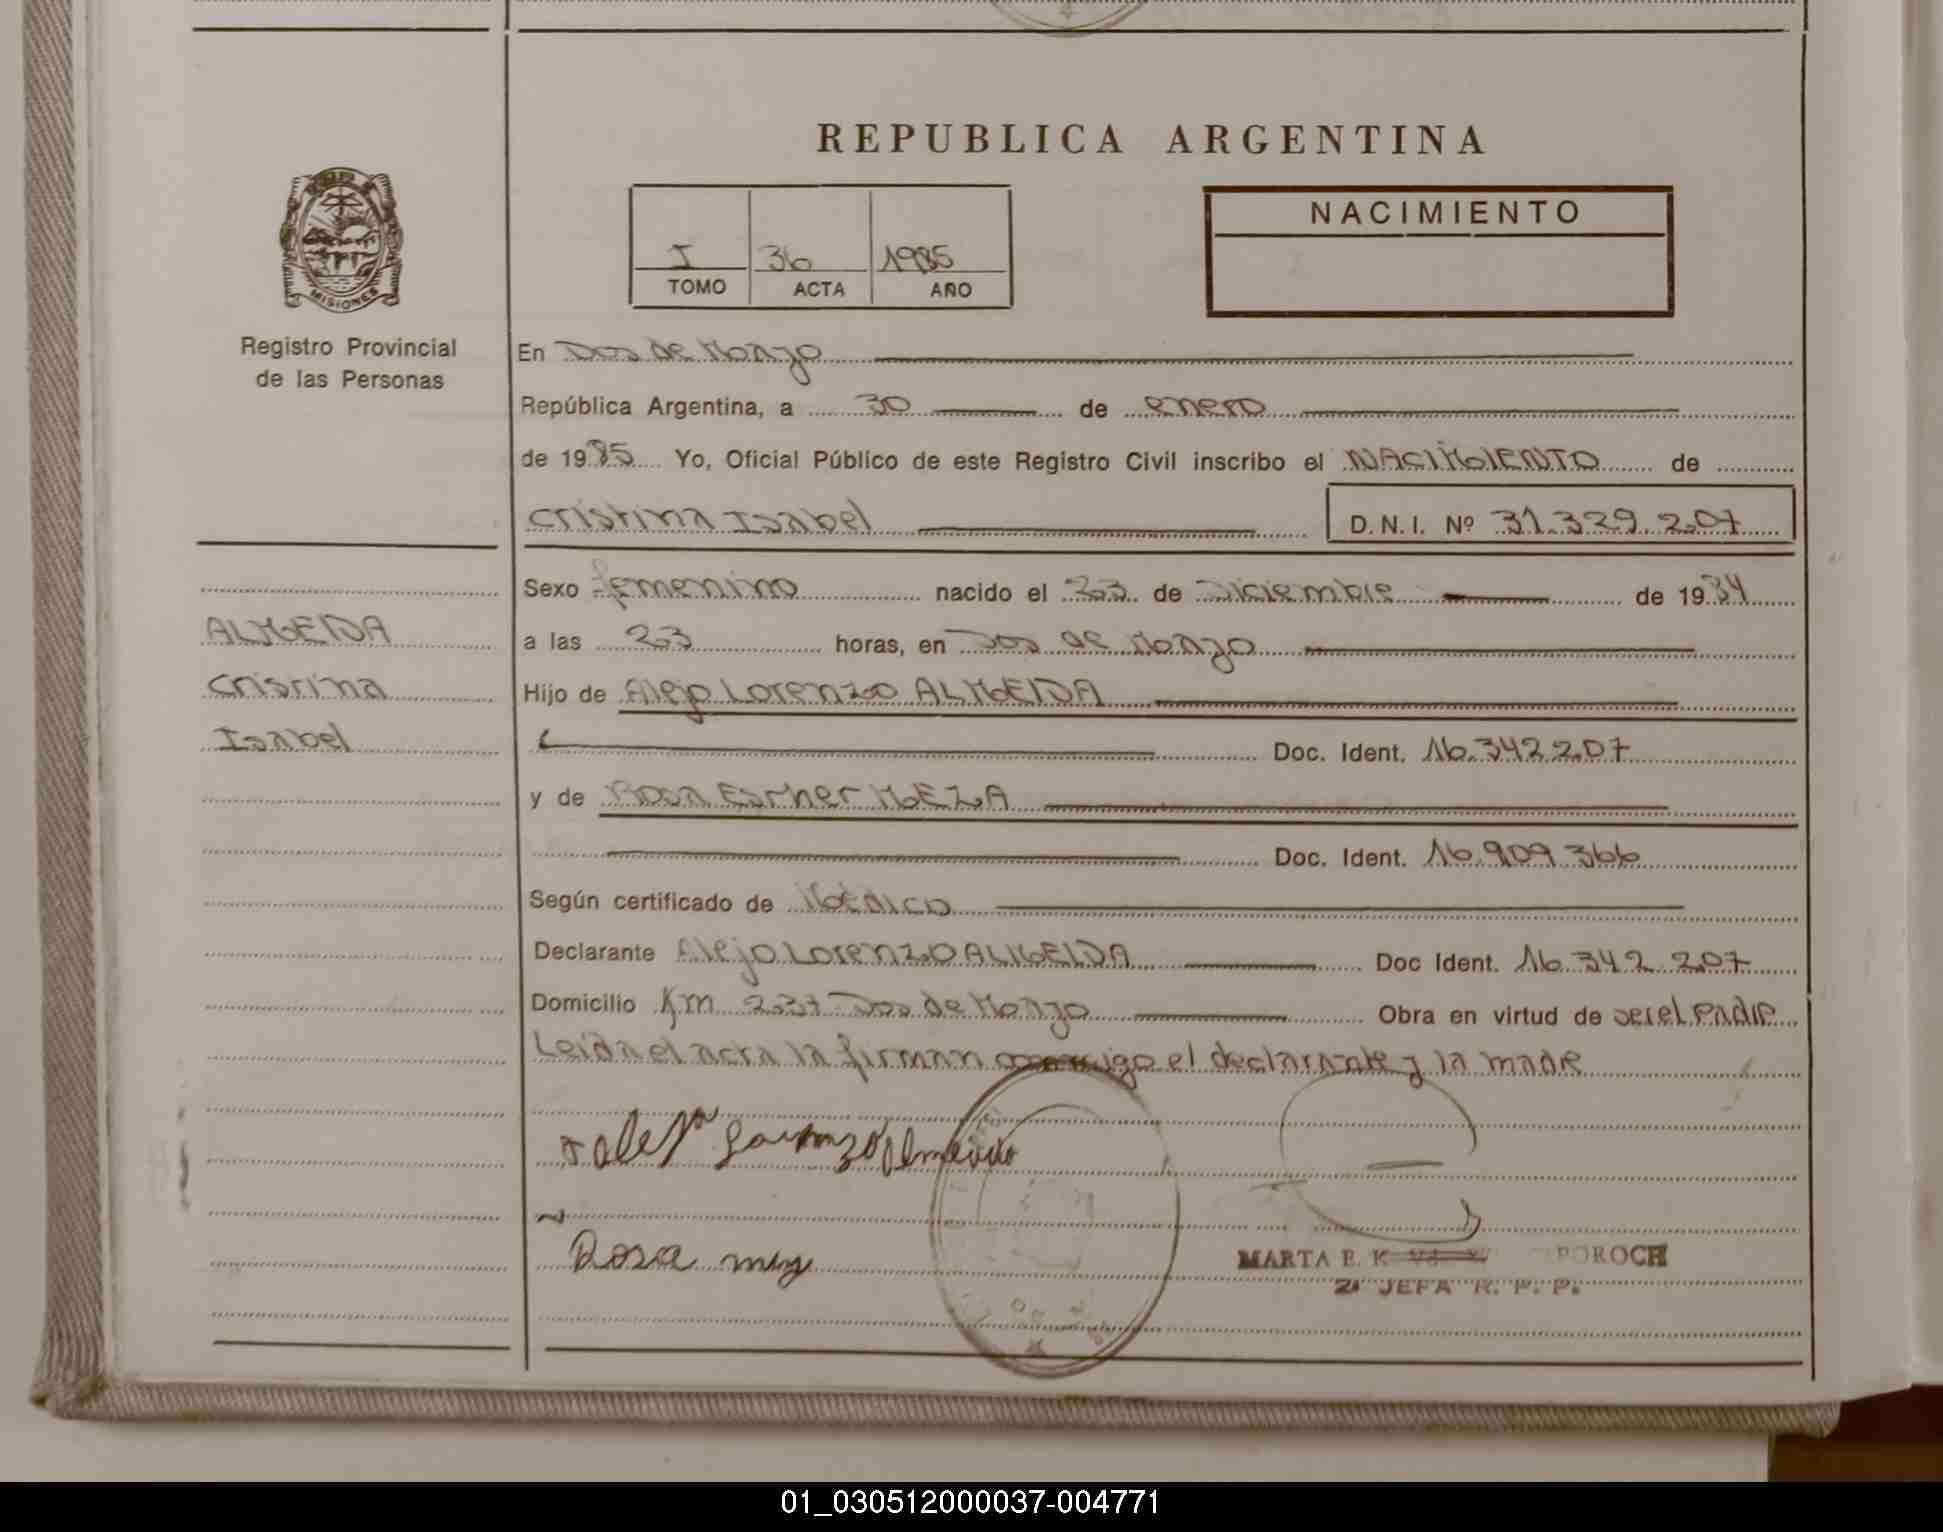 REPUBLICA ARGENTINA
MISIONES
Registro Provincial
de las Personas
I 36 1985
TOMO ACTA AÑO
NACIMIENTO
En Dos de Mayo
República Argentina, a 30 de enero
de 1985 Yo, Oficial Público de este Registro Civil inscribo el NACIMIENTO de
Cristina Isabel
D.N.I. Nº 31.329.207
ALMEIDA
Cristina
Isabel
Sexo femenino nacido el 23 de Diciembre de 1984
a las 23 horas, en Dos de Mayo
Hijo de Alejo Lorenzo ALMEIDA
Doc. Ident. 16.342.207
y de Rosa Esther MEZA
Doc. Ident. 16.909.366
Según certificado de Médico
Declarante Alejo Lorenzo ALMEIDA Doc Ident. 16.342.207
Domicilio Km 237 Dos de Mayo Obra en virtud de ser el Padre
Leida el acta la firman conmigo el declarante y la madre
Almeida
Rosa
MARTA E. K POROCH
2ª JEFA R. P. P.
01_030512000037-004771